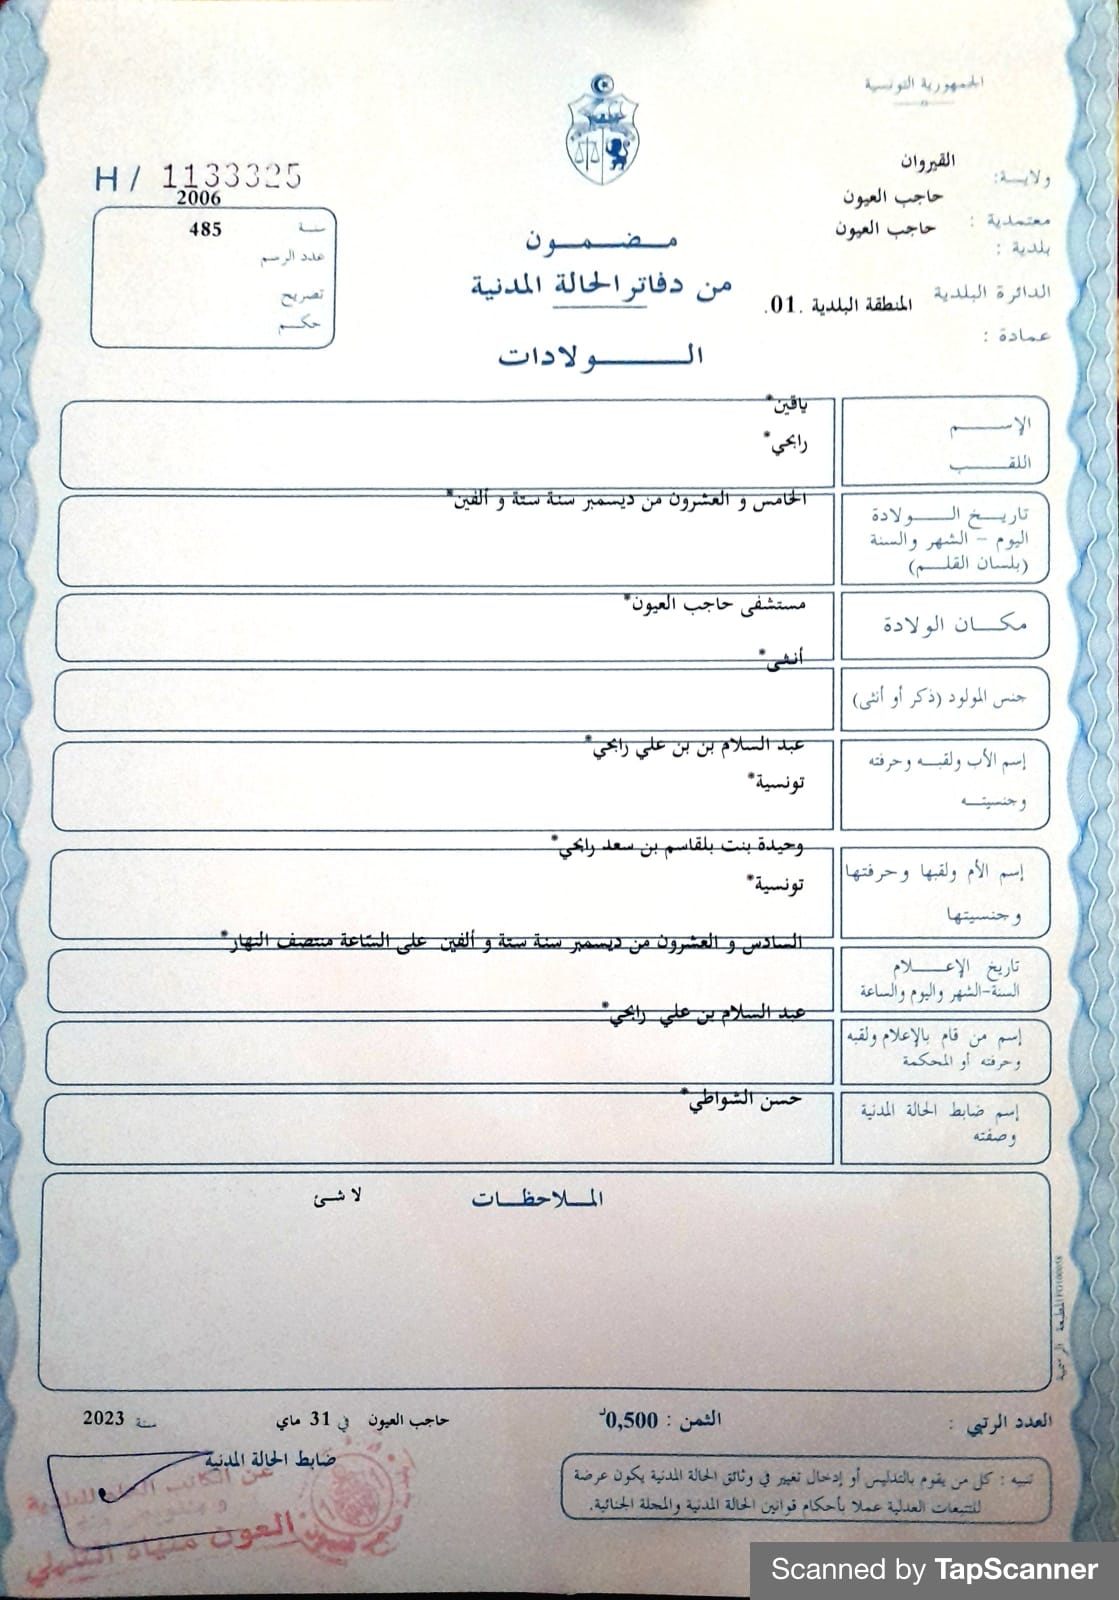 الجمهورية التونسية
ولايـــة: القيروان
معتمدية : حاجب العيون
بلدية : حاجب العيون
الدائرة البلدية المنطقة البلدية .01.
عمادة :
H/ 1133325
2006
سنة 485
عدد الرسم
تصريح
حكم
مضمون
من دفاتر الحالة المدنية
الـولادات
الإسم ياقين*
اللقب رابحي*
تاريخ الولادة الخامس و العشرون من ديسمبر سنة ستة و ألفين*
اليوم - الشهر والسنة
(بلسان القلم)
مكان الولادة مستشفى حاجب العيون*
أنثى*
جنس المولود (ذكر أو أنثى)
إسم الأب ولقبه وحرفته عبد السلام بن بن علي رابحي*
وجنسيته تونسية*
إسم الأم ولقبها وحرفتها وحيدة بنت بلقاسم بن سعد رابحي*
وجنسيتها تونسية*
السادس و العشرون من ديسمبر سنة ستة و ألفين على السّاعة منتصف النهار*
تاريخ الإعلام
السنة-الشهر واليوم والساعة
عبد السلام بن علي رابحي*
إسم من قام بالإعلام ولقبه
وحرفته أو المحكمة
حسن الشواطي*
إسم ضابط الحالة المدنية
وصفته
الملاحظات لا شئ
العدد الرتبي : الثمن : 0,500د حاجب العيون في 31 ماي سنة 2023
ضابط الحالة المدنية
تنبيه : كل من يقوم بالتدليس أو إدخال تغيير في وثائق الحالة المدنية يكون عرضة
للتتبعات العدلية عملا بأحكام قوانين الحالة المدنية والمجلة الجنائية.
عن الكاتب العام للبلدية
المطبعة الرسمية
Scanned by TapScanner